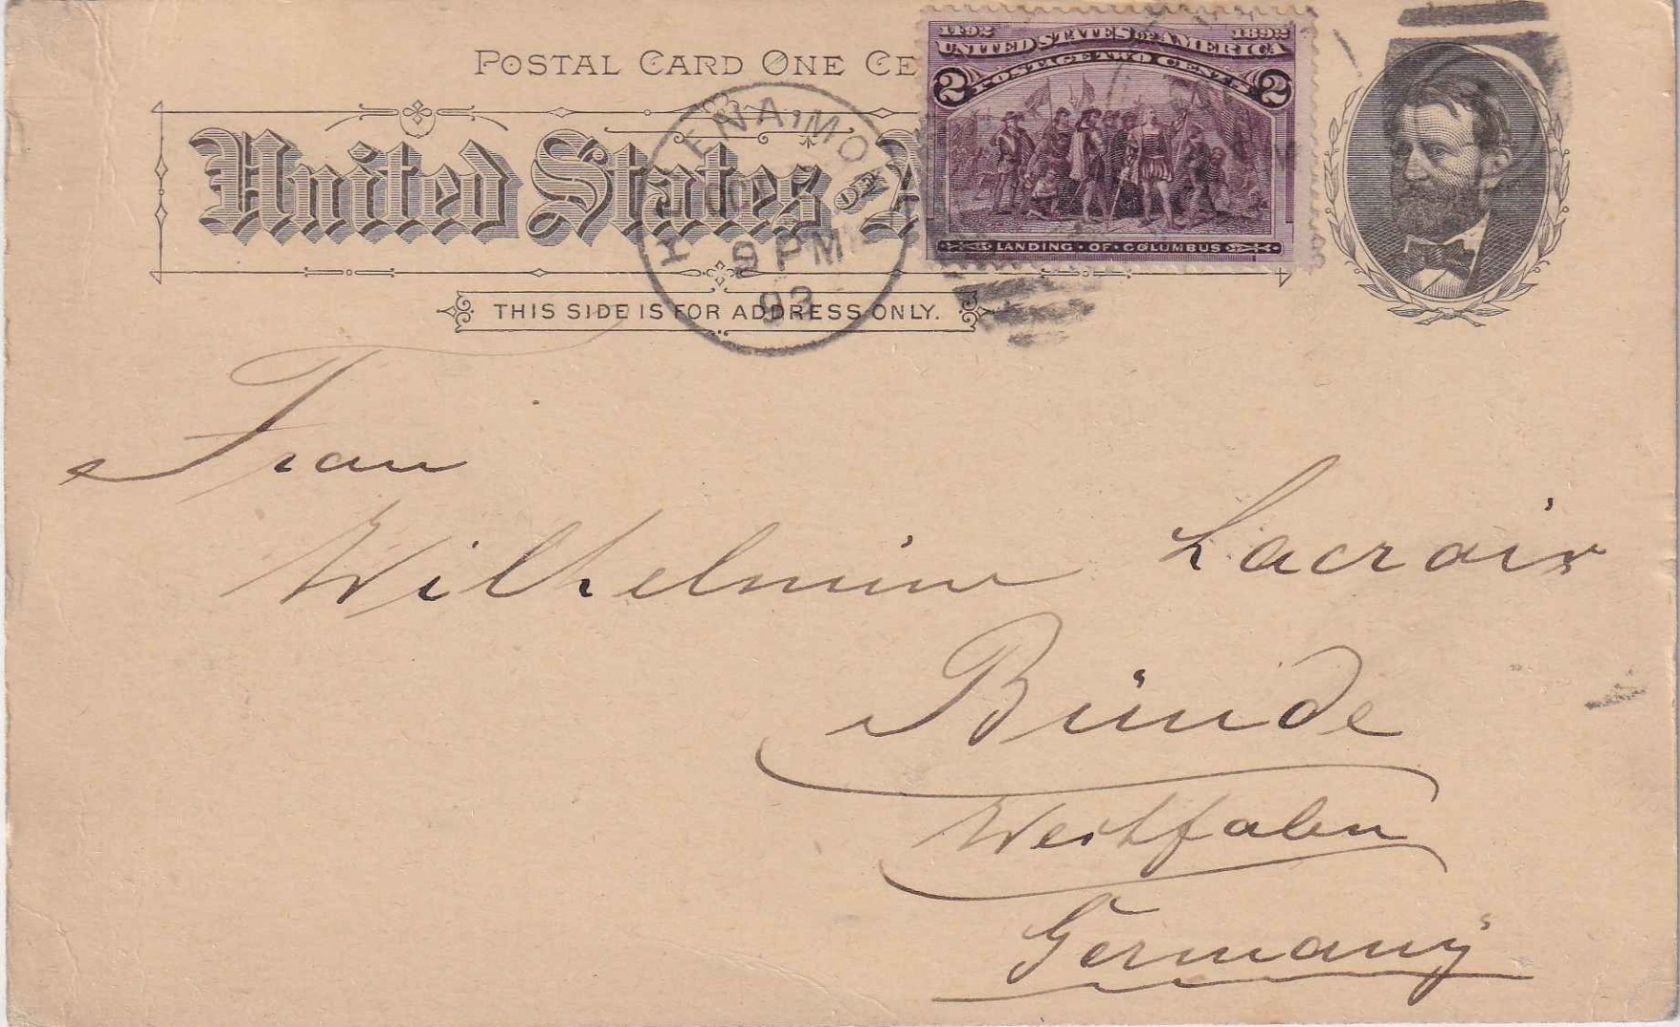 POSTAL CARD ONE CE
1492 1892
UNITED STATES OF AMERICA
POSTAGE TWO CENTS
2 2
LANDING · OF · COLUMBUS
United States
HELENA, MO
9 PM
93
THIS SIDE IS FOR ADDRESS ONLY.
Frau
Wilhelmine Lacroix
Bünde
Westfalen
Germany